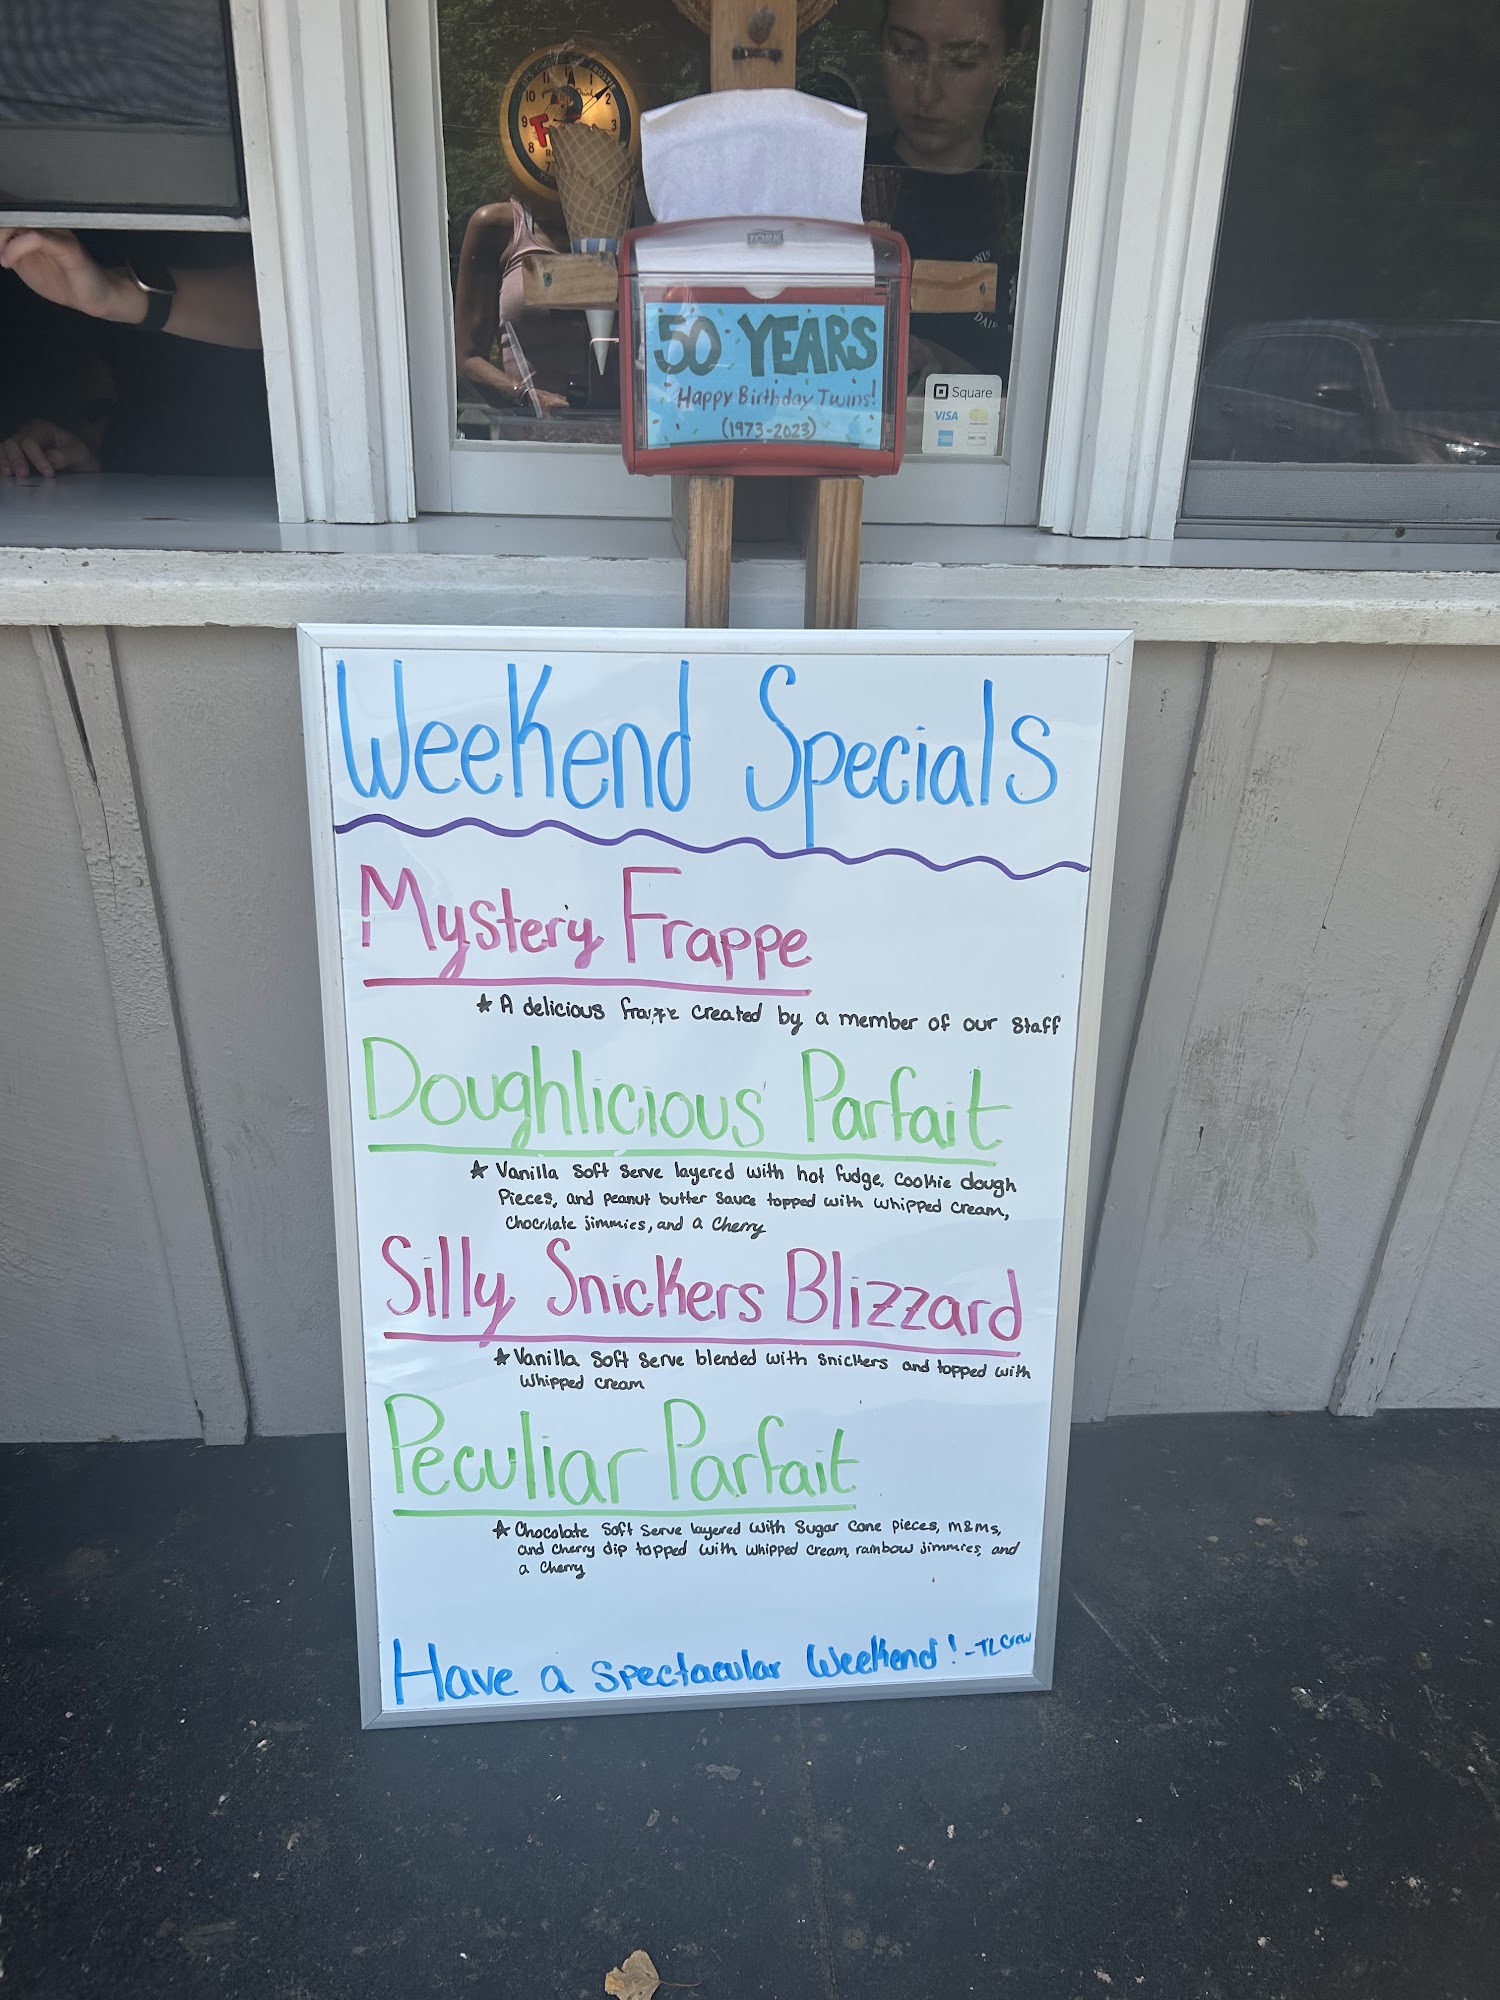 TORK
50 YEARS
Happy Birthday Twins!
(1973-2023)
Square
VISA
Weekend Specials
Mystery Frappe
★ A delicious frappe created by a member of our staff
Doughlicious Parfait
★ Vanilla soft serve layered with hot fudge, cookie dough
pieces, and peanut butter sauce topped with whipped cream,
chocolate jimmies, and a cherry
Silly Snickers Blizzard
★ Vanilla soft serve blended with snickers and topped with
whipped cream
Peculiar Parfait
★ Chocolate soft serve layered with sugar cone pieces, m&ms,
and cherry dip topped with whipped cream, rainbow jimmies, and
a cherry
Have a spectacular weekend! -TL crew